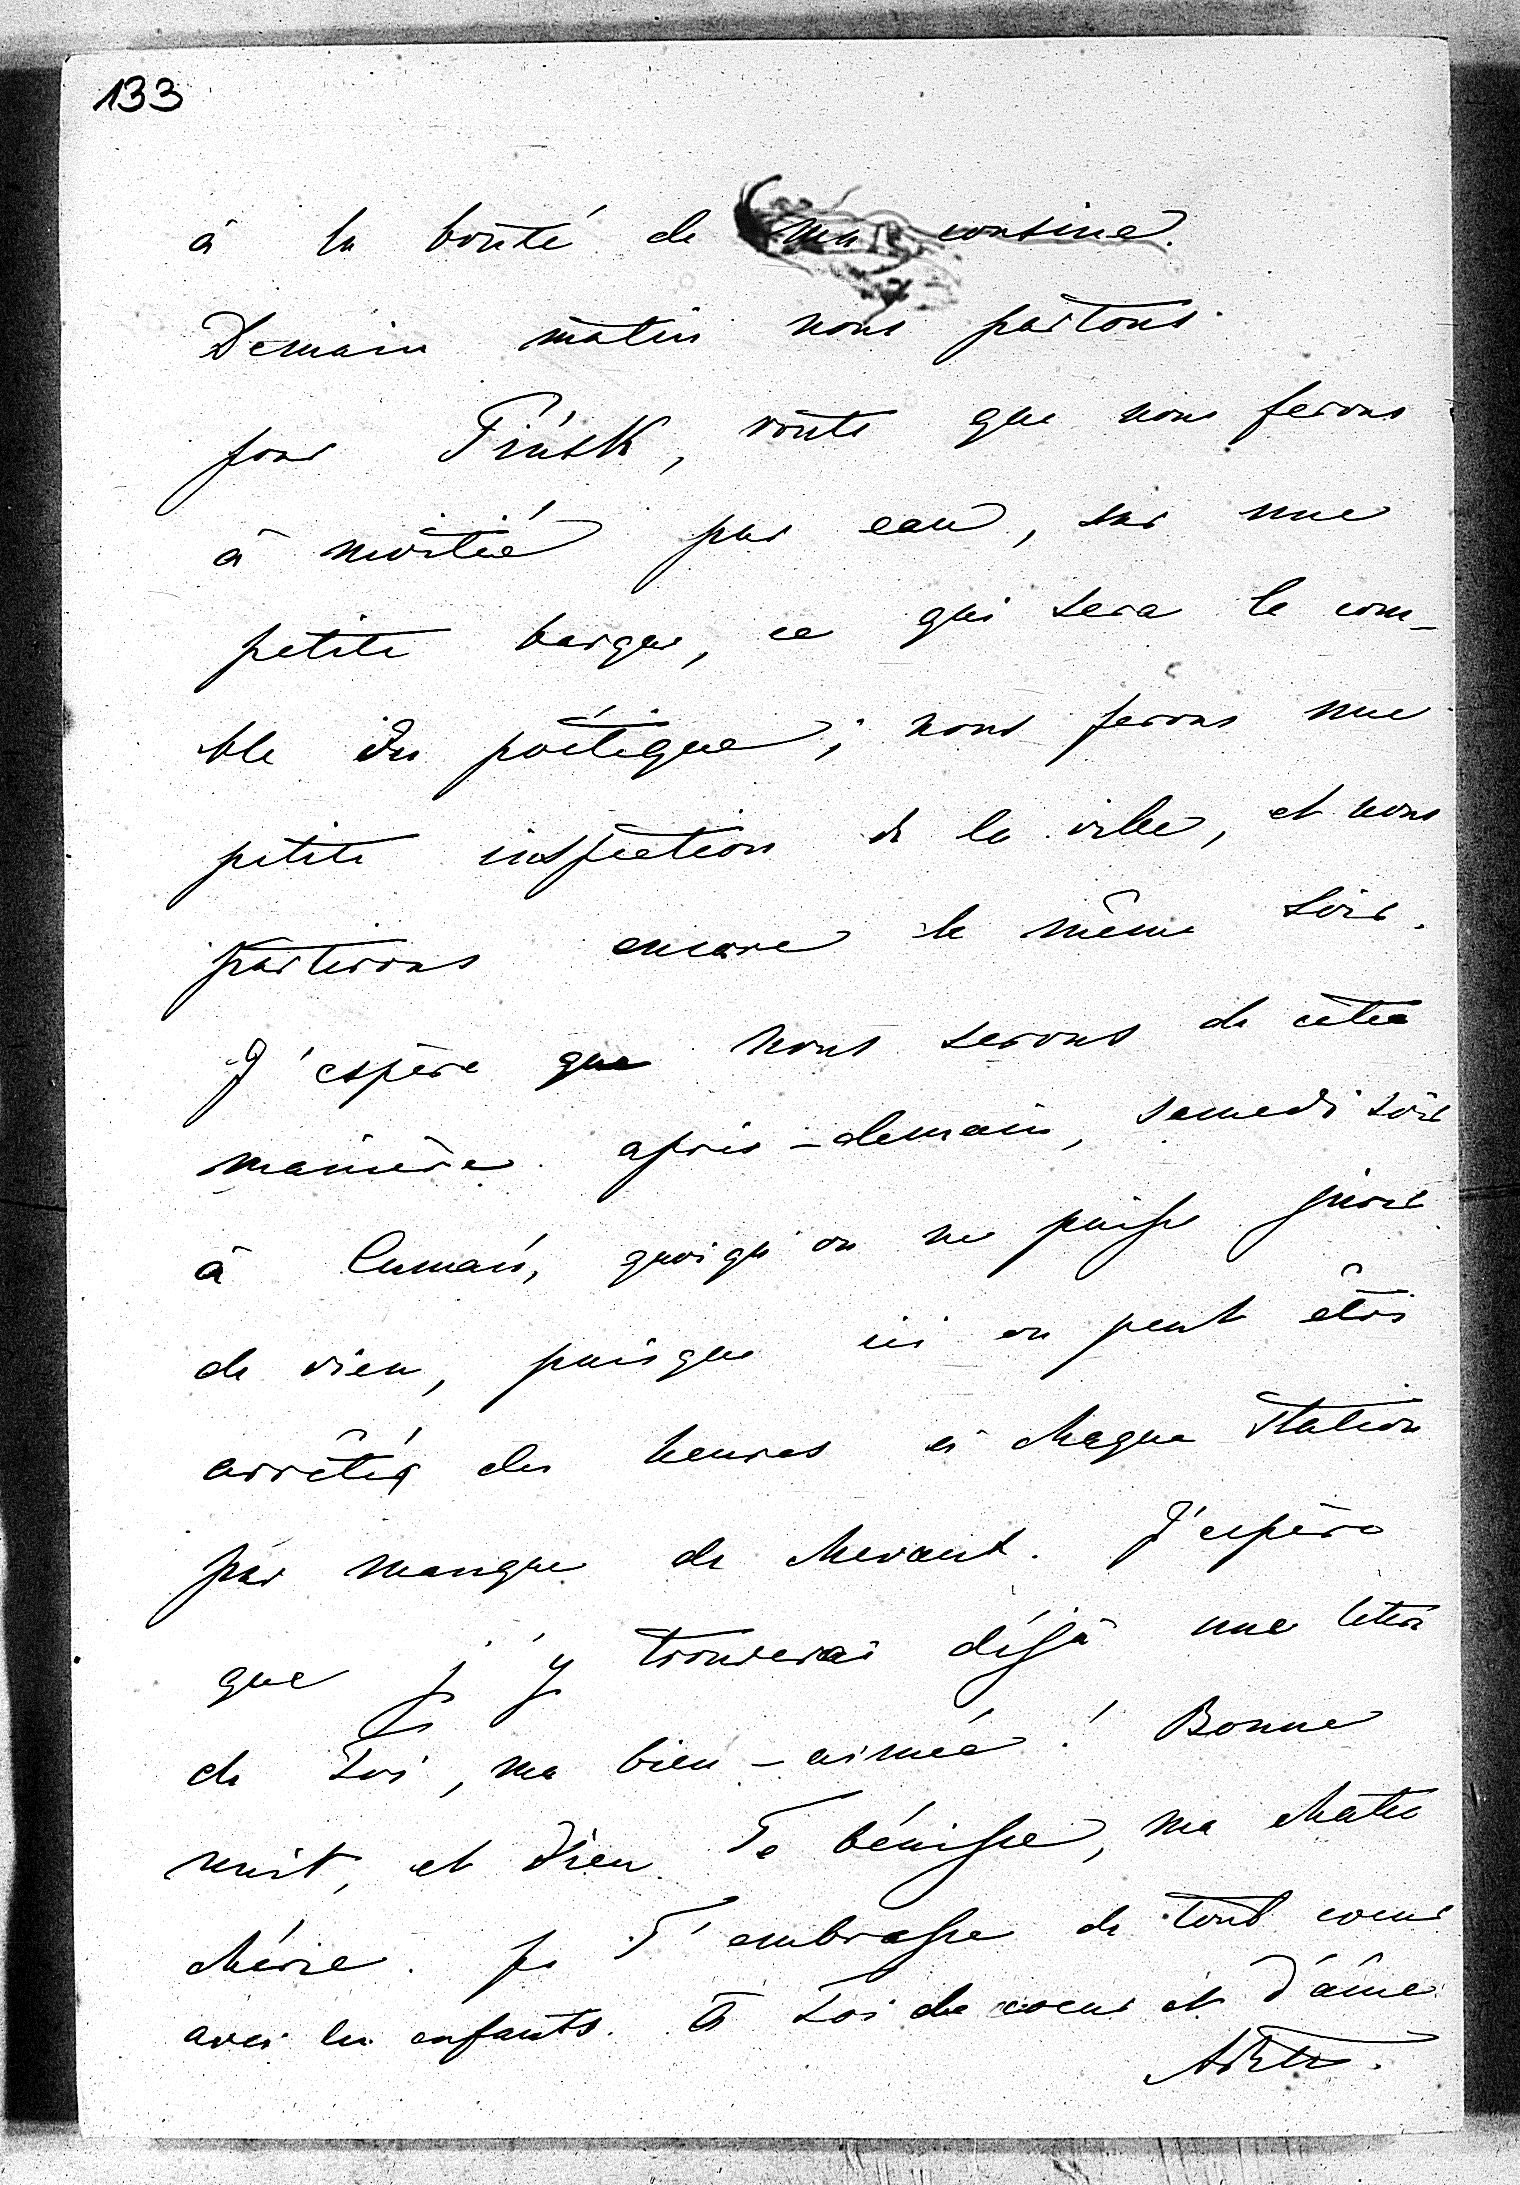 133
à la bonté de ma cousine.
Demain matin nous partons
pour Pińsk, route que nous ferons
à moitié par eau, sur une
petite barque, ce qui sera le com-
ble du poétique; nous ferons une
petite inspection de la ville, et nous
partirons encore le même soir.
J'espère que nous serons de cette
manière après-demain, samedi soir
à Cumań, quoiqu'on ne puisse jurer
de rien, puisque ici on peut être
arrêté des heures à chaque station
par manque de chevaux. J'espère
que j'y trouverai déjà une lettre
de Toi, ma bien-aimée! Bonne
nuit, et Dieu Te bénisse, ma
chérie. Je T'embrasse de tout coeur
avec les enfants. à Toi de coeur et d'âme